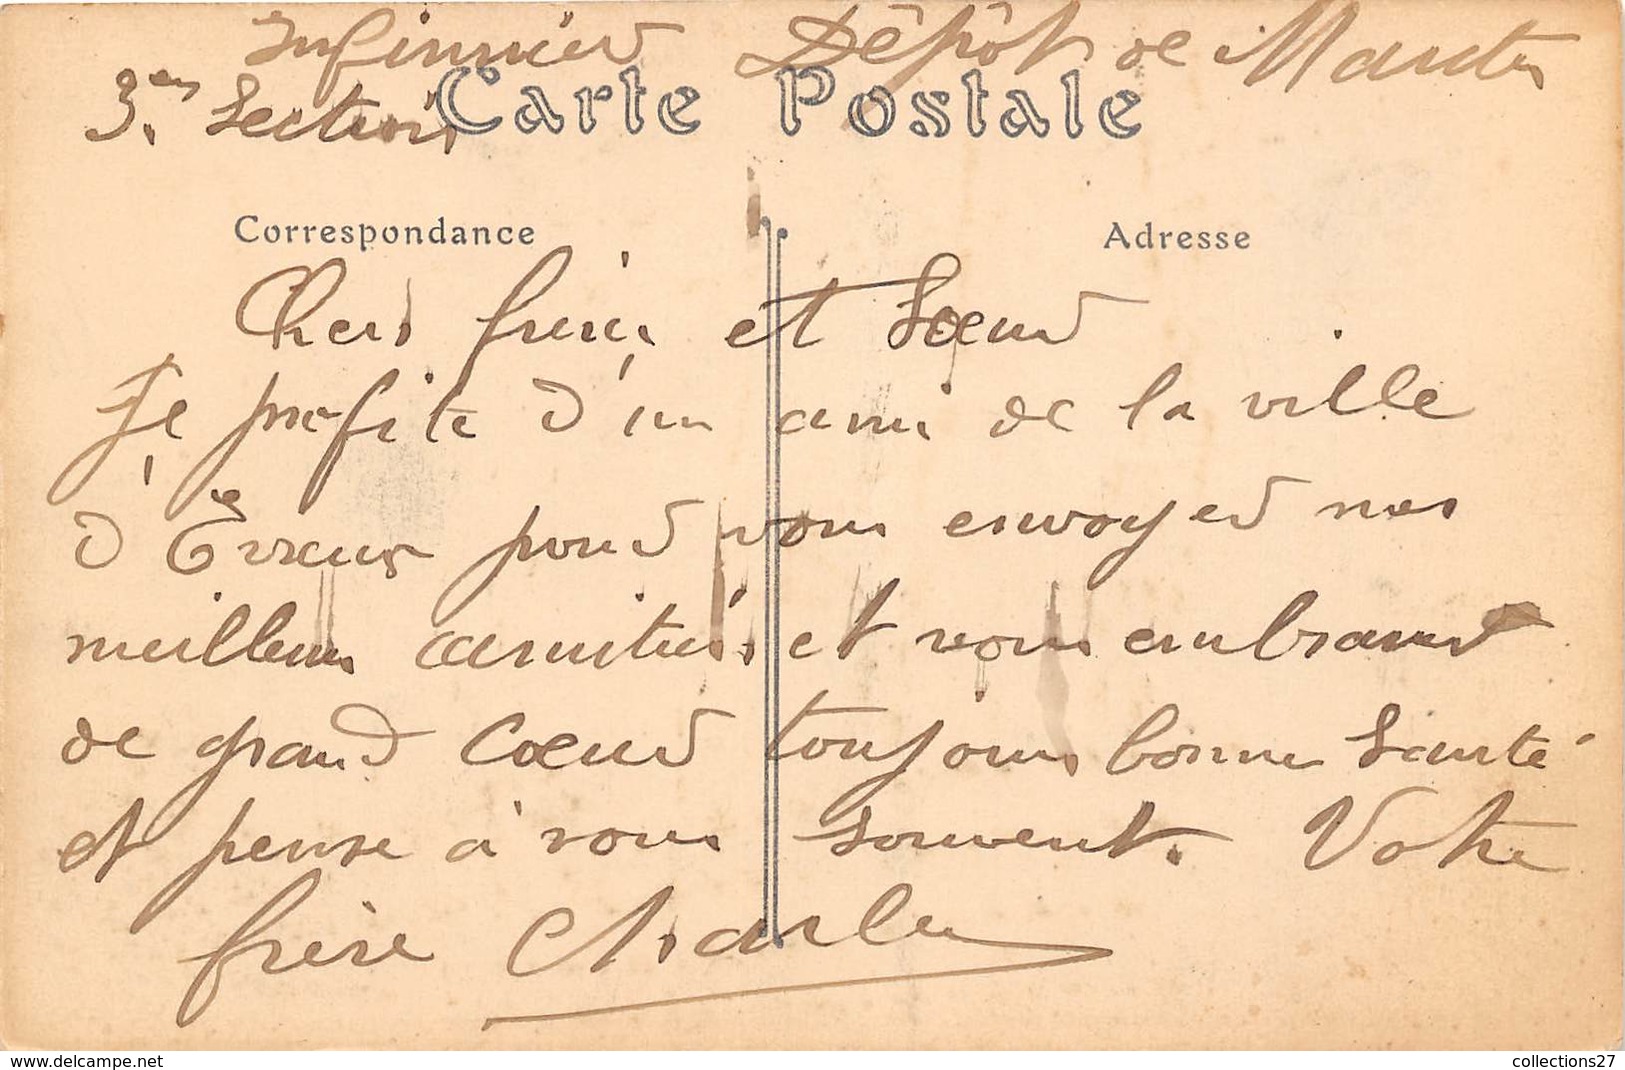 Infirmier Dépôt de Mantes
3.em Section
Carte Postale
Correspondance
Adresse
Chers frère et Soeur
Je profite d'un ami de la ville
d'Évreux pour vous envoyer mes
meilleurs amitiés et vous embrasse
de grand Coeur toujours bonne Santé
et pense à vous souvent. Votre
frère Charles
www.delcampe.net
collections27